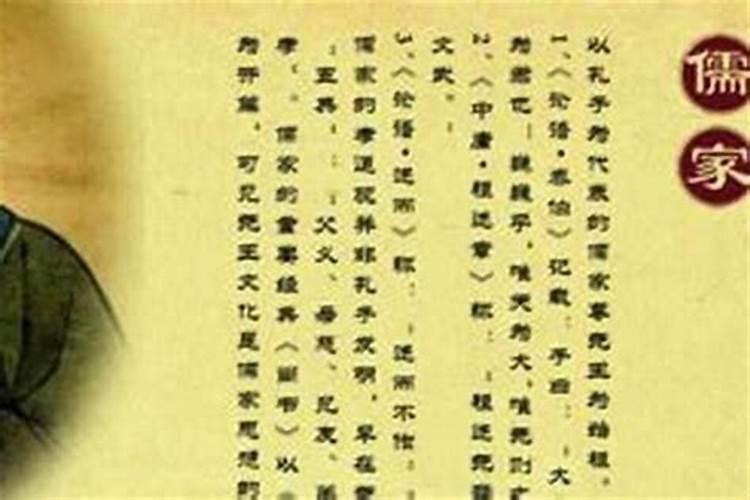 儒家
以孔子为代表的儒家尊尧王为始祖。
1、《论语·泰伯》记载：子曰：“大
为君也！巍巍乎，唯天为大，唯尧则之
2、《中庸·祖述章》称：“祖述尧舜
文武。”
3、《论语·述而》称：“述而不作。
儒家的孝道观并非孔子发明，早在
“五典”：“父义、母慈、兄友、弟
孝”。儒家的重要经典《尚书》以
为开篇。可见尧王文化是儒家思想的